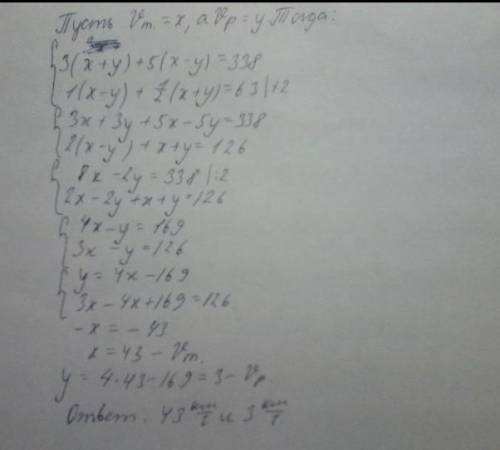 Пусть Vт. = x, а Vр = y. Тогда:
3(x+y)+5(x-y)=338
1(x-y)+1/2(x+y)=63 |·2
3x+3y+5x-5y=338
2(x-y)+x+y=126
8x-2y=338 |:2
2x-2y+x+y=126
4x-y=169
3x-y=126
y=4x-169
3x-4x+169=126
-x=-43
x=43 - Vт.
y=4·43-169=3 - Vр.
Ответ. 43 км/г и 3 км/г